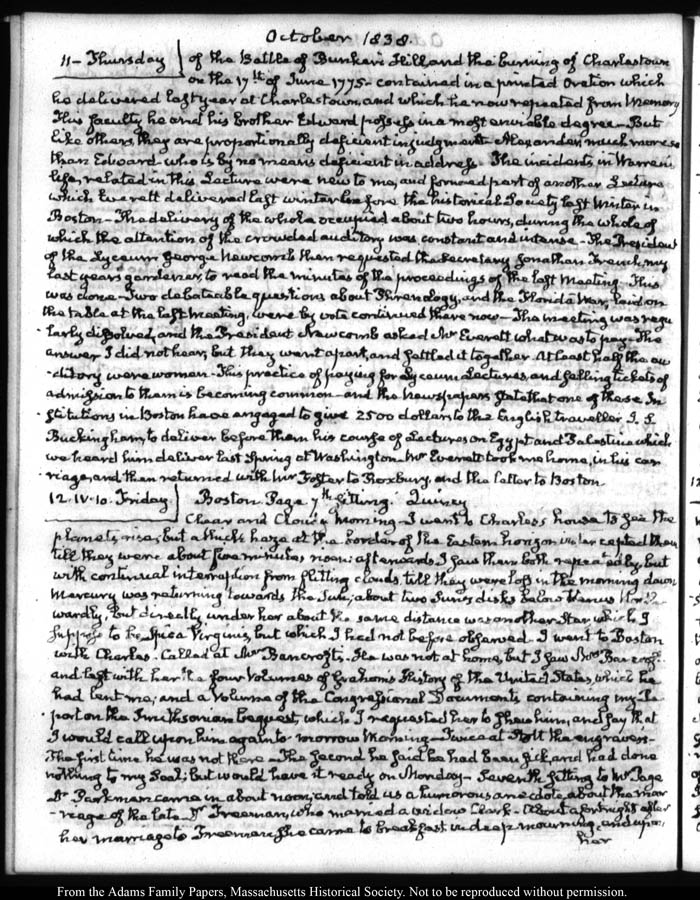 October 1838.
11 - Thursday of the Battle of Bunker's Hill and the burning of Charlestown
on the 17th of June 1775 - contained in a printed Oration which
he delivered last year at Charlestown, and which he now repeated from Memory
This faculty he and his brother Edward possess in a most enviable degree - But
like others they are proportionally deficient in judgment - Alexander, much more so
than Edward who is by no means deficient in address. The incidents in Warren's
life, related in this Lecture were new to me, and formed part of another Lecture
which Everett delivered last winter before the historical Society last Winter in
Boston - The delivery of the whole occupied about two hours, during the whole of
which the attention of the crowded auditory was constant and intense - The President
of the Lyceum George Newcomb then requested the Secretary Jonathan French, my
last year's gardener, to read the minutes of the proceedings of the last Meeting. This
was done - Two debateable questions about Phrenology, and the Florida War, laid on
the table at the last meeting, were by vote continued there now - The meeting was regu
larly dissolved, and the President Newcomb asked Mr Everett what was to pay. The
answer I did not hear, but they went apart, and settled it together. At least half the au
-ditory were women - This practice of paying for Lyceum Lectures, and selling tickets of
admission to them is becoming common - and the Newspapers state that one of these In
stitutions in Boston have engaged to give 2500 dollars to the English traveller J. S.
Buckingham, to deliver before them his course of Lectures on Egypt and Palestine which
we heard him deliver last Spring at Washington. Mr Everett took me home, in his car
riage, and then returned with Mr Foster to Roxbury, and the latter to Boston.
12. IV.10. Friday Boston. Page 7th sitting. Quincy
Clear and Cloudy Morning - I went to Charles's house to see the
planets rise, but a thick haze at the border of the Eastern horizon intercepted them
till they were about five minutes risen: afterwards I saw them both repeatedly, but
with continual interruption from flitting clouds, till they were lost in the morning dawn
Mercury was returning towards the Sun; about two Sun's disks below Venus
wardly, but directly under her about the same distance was another Star which I
suppose to be Spica Virginis, but which I had not before observed. I went to Boston
with Charles. Called at Mr Bancroft's. He was not at home, but I saw Mrs Bancroft
and left with her the four Volumes of Grahame's History of the United States, which he
had lent me; and a Volume of the Congressional Documents containing my Re
port on the Smithsonian bequest, which I requested her to shew him, and say that
I would call upon him again to morrow Morning - Twice at Stott the engraver's -
The first time he was not there - The second he said he had been sick, and had done
nothing to my Seal; but would have it ready on Monday - Seventh sitting to Mr Page
Dr Parkman came in about noon, and told us a humorous anecdote about the mar
-riage of the late Dr Freeman, who married a widow Clark - About a fortnight after
her marriage to Freeman she came to breakfast in deep mourning, and upon
her
From the Adams Family Papers, Massachusetts Historical Society. Not to be reproduced without permission.